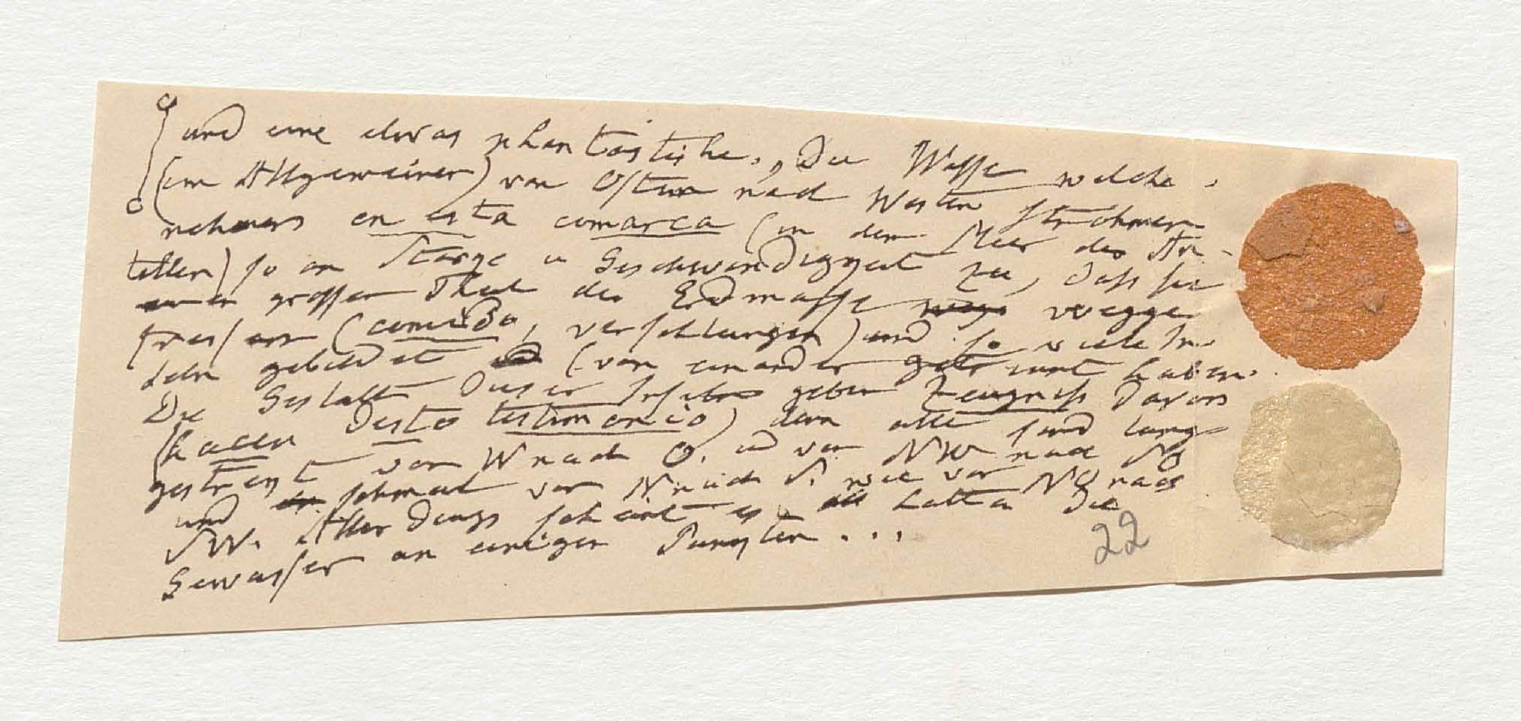 und eine etwas phantastische. „Die Wasser welche
(im Allgemeinen) von Osten nach Westen strömen
nehmen en esta comarca (in dem Meer der An-
tillen) so an Stärge u Geschwindiggeit zu, dass sie
einen grossen Theil der Erdmasse wegge-
fressen (comido, verschlungen) und so viele In-
seln gebildet (von einander getrennt haben.
Die Gestalt dieser Inseln geben Zeugniss davon
(hacen desto testimonio) denn alle sind lang-
gestrekt von W nach O. und von NW nach SO
und schmal von N nach S. wie von NO nach
SW. Allerdings scheint es hatten die
Gewässer an einigen Pungten ...
22